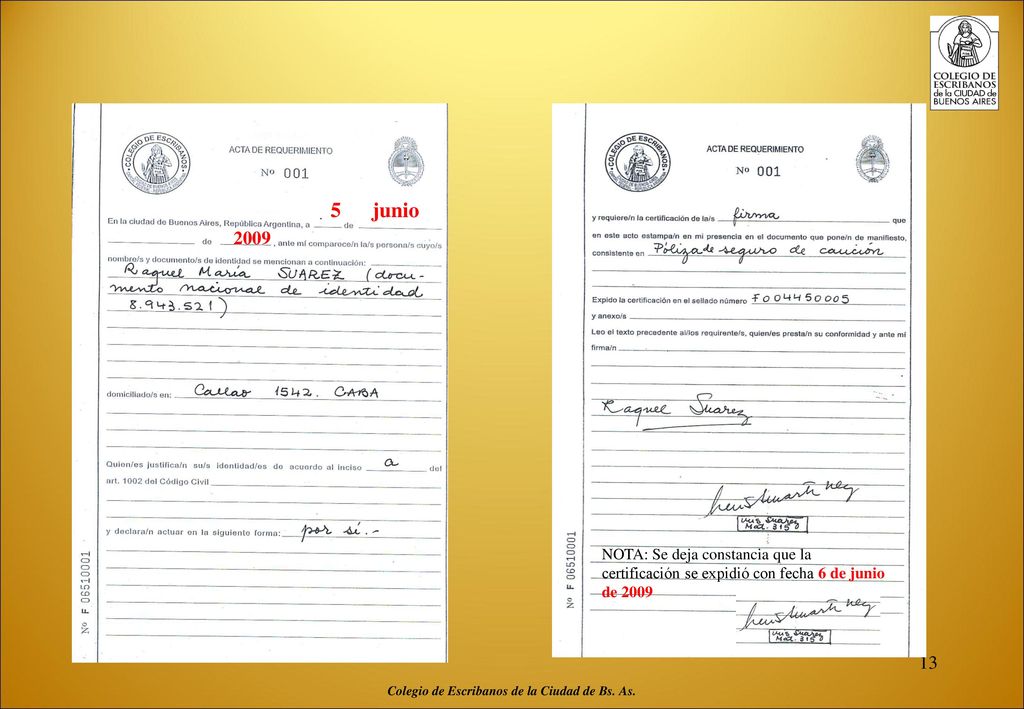 COLEGIO DE
ESCRIBANOS
de la CIUDAD de
BUENOS AIRES
COLEGIO DE ESCRIBANOS
ACTA DE REQUERIMIENTO
Nº 001
5 junio
En la ciudad de Buenos Aires, República Argentina, a de
de 2009, ante mí comparece/n la/s persona/s cuyo/s
nombre/s y documento/s de identidad se mencionan a continuación:
Raquel María SUAREZ (docu-
mento nacional de identidad
8.943.521)
domiciliado/s en: Callao 1542. CABA
Quien/es justifica/n su/s identidad/es de acuerdo al inciso a del
art. 1002 del Código Civil
y declara/n actuar en la siguiente forma: por sí.-
Nº F 06510001
COLEGIO DE ESCRIBANOS
ACTA DE REQUERIMIENTO
Nº 001
y requiere/n la certificación de la/s firma que
en este acto estampa/n en mi presencia en el documento que pone/n de manifiesto,
consistente en Póliza de seguro de caución
Expido la certificación en el sellado número F004450005
y anexo/s
Leo el texto precedente al/los requirente/s, quien/es presta/n su conformidad y ante mí
firma/n
Raquel Suarez
Luis Suarez
Mat. 3150
NOTA: Se deja constancia que la
certificación se expidió con fecha 6 de junio
de 2009
Luis Suarez
Mat. 3150
Nº F 06510001
13
Colegio de Escribanos de la Ciudad de Bs. As.